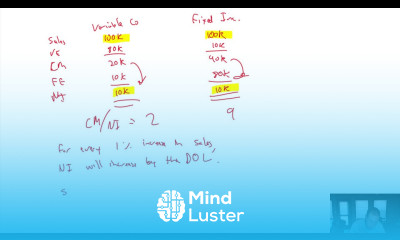 Variable Co    Fixed Inc.
Sales    100K    100K
VC    80K    10K
CM    20K    90K
FE    10K    80K
NI    10K    10K
CM/NI = 2    9
For every 1% increase in sales,
NI will increase by the DOL.
S
Mind
Luster